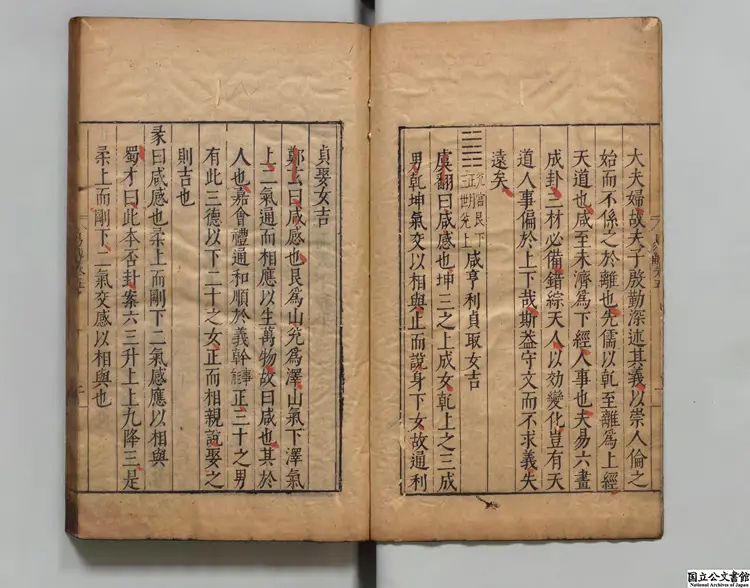 大夫婦故夫子殷勤深述其義以崇人倫之
始而不係之於離也先儒以乾至離爲上經
天道也咸至未濟爲下經人事也夫易六畫
成卦三材必備錯綜天人以効變化豈有天
道人事偏於上下哉斯蓋守文而不求義失
遠矣
咸亨利貞取女吉
虞翻曰咸感也坤三之上成女乾上之三成
男乾坤氣交以相與止而說男下女故通利
貞娶女吉
鄭玄曰咸感也艮爲山兌爲澤山氣下澤氣
上二氣通而相應以生萬物故曰咸也其於
人也嘉會禮通和順於義幹事能正三十之男
有此三德以下二十之女正而相親說娶之
則吉也
彖曰咸感也柔上而剛下二氣感應以相與
蜀才曰此本否卦案六三升上上九降三是
柔上而剛下二氣交感以相與也
国立公文書館
National Archives of Japan